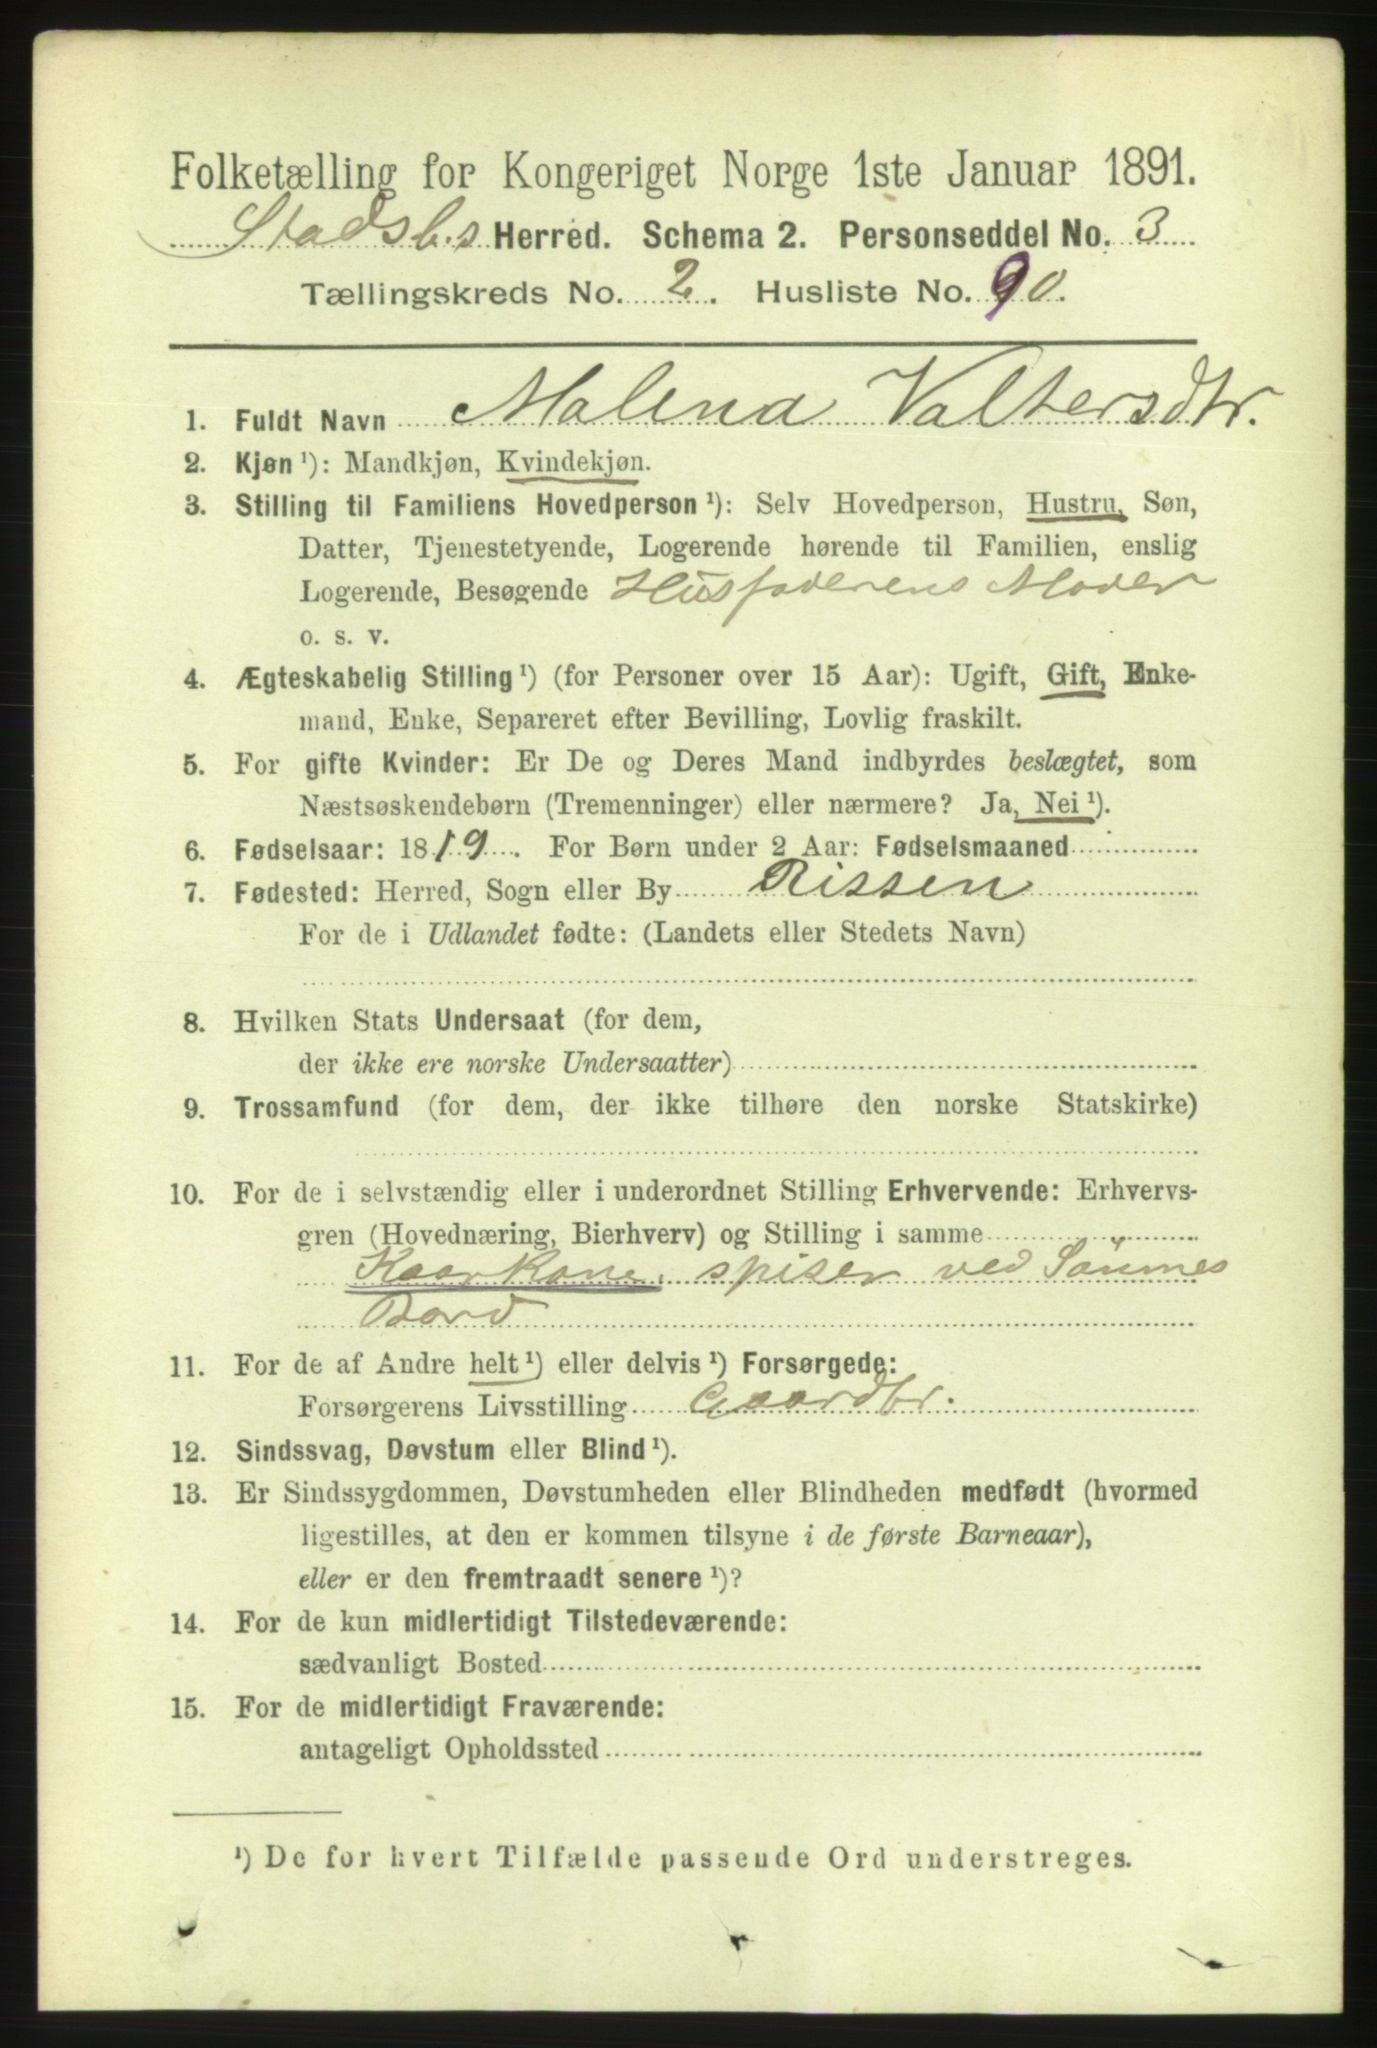 Folketælling for Kongeriget Norge 1ste Januar 1891.
Stadsb.s Herred. Schema 2. Personseddel No. 3
Tællingskreds No. 2. Husliste No. 90.
1. Fuldt Navn Malena Valtersdtr.
2. Kjøn ¹): Mandkjøn, Kvindekjøn.
3. Stilling til Familiens Hovedperson ¹): Selv Hovedperson, Hustru, Søn,
Datter, Tjenestetyende, Logerende hørende til Familien, enslig
Logerende, Besøgende Husfaderens Moder
o. s. v.
4. Ægteskabelig Stilling ¹) (for Personer over 15 Aar): Ugift, Gift, Enke-
mand, Enke, Separeret efter Bevilling, Lovlig fraskilt.
5. For gifte Kvinder: Er De og Deres Mand indbyrdes beslægtet, som
Næstsøskendebørn (Tremenninger) eller nærmere? Ja, Nei ¹).
6. Fødselsaar: 1819. For Børn under 2 Aar: Fødselsmaaned
7. Fødested: Herred, Sogn eller By Rissen
For de i Udlandet fødte: (Landets eller Stedets Navn)
8. Hvilken Stats Undersaat (for dem,
der ikke ere norske Undersaatter)
9. Trossamfund (for dem, der ikke tilhøre den norske Statskirke)
10. For de i selvstændig eller i underordnet Stilling Erhvervende: Erhvervs-
gren (Hovednæring, Bierhverv) og Stilling i samme
Kaarkone, spiser ved Sønnes
Bord
11. For de af Andre helt ¹) eller delvis ¹) Forsørgede:
Forsørgerens Livsstilling Gaardbr.
12. Sindssvag, Døvstum eller Blind ¹).
13. Er Sindssygdommen, Døvstumheden eller Blindheden medfødt (hvormed
ligestilles, at den er kommen tilsyne i de første Barneaar),
eller er den fremtraadt senere ¹)?
14. For de kun midlertidigt Tilstedeværende:
sædvanligt Bosted
15. For de midlertidigt Fraværende:
antageligt Opholdssted
¹) De for hvert Tilfælde passende Ord understreges.